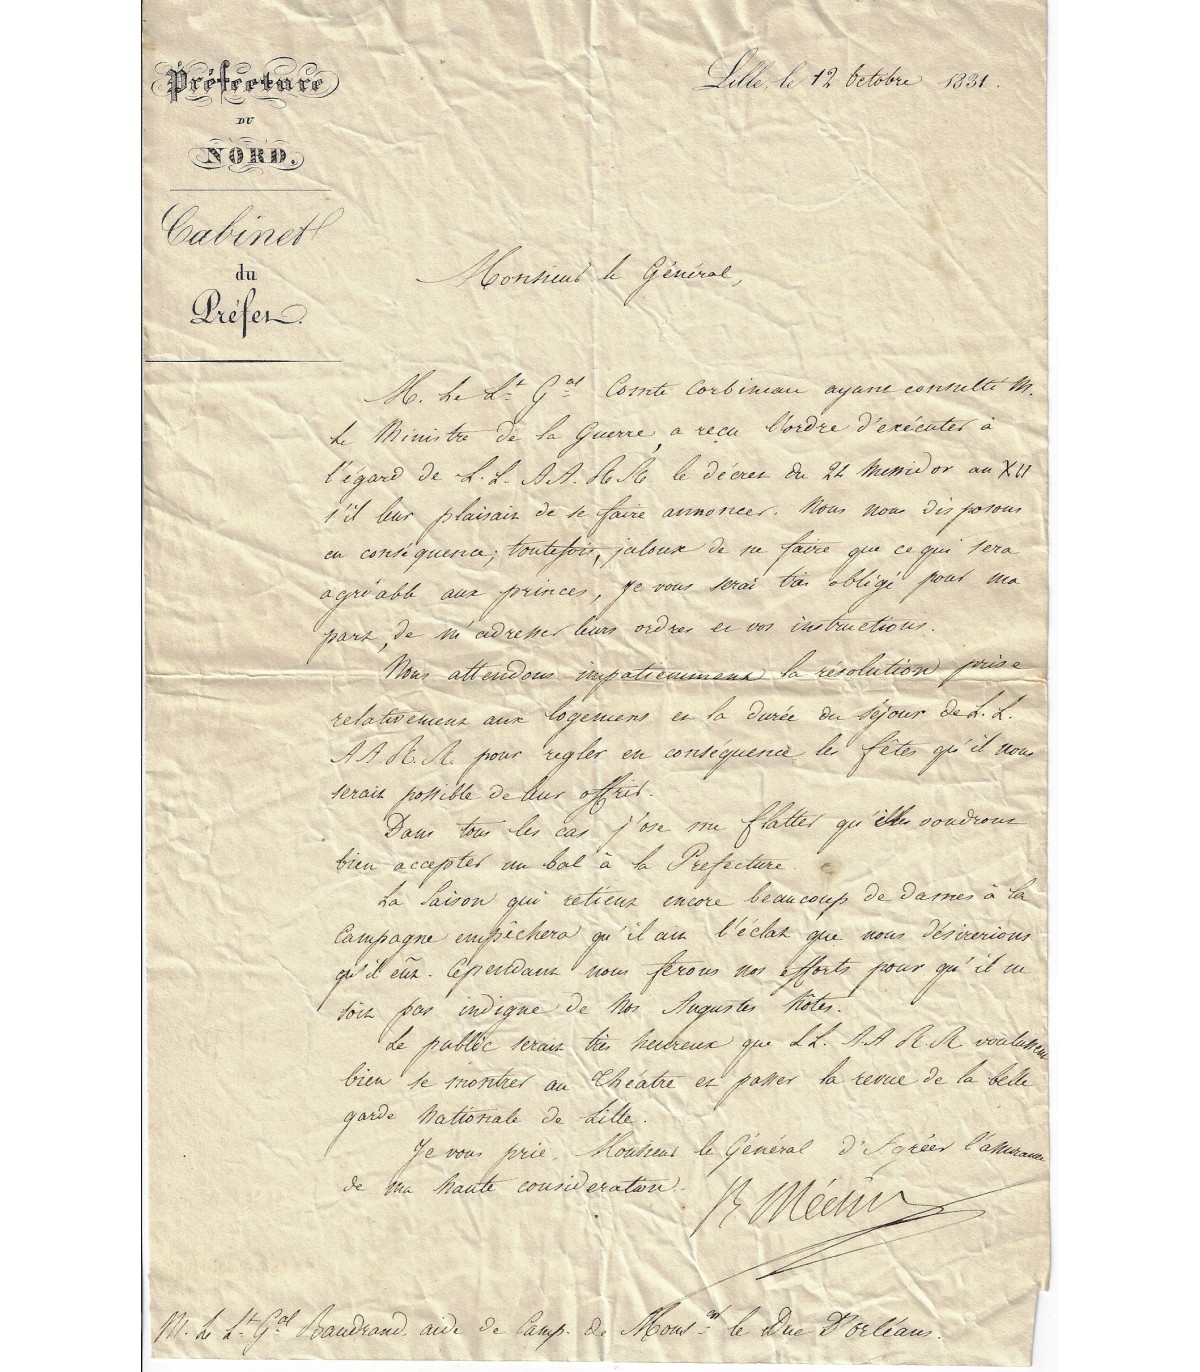 Préfecture
DU
NORD.
Cabinet
du
Préfet.
Lille, le 12 Octobre 1831.
Monsieur le Général,
M. Le Lt. Gal. Comte Corbineau ayant consulté M.
Le Ministre de la Guerre, a reçu l'ordre d'exécuter à
l'égard de L.L. A A. R R. le décret du 24 Messidor an XII
s'il leur plaisait de se faire annoncer. Nous nous disposons
en conséquence; toutefois, jaloux de ne faire que ce qui sera
agréable aux princes, je vous serai très obligé pour ma
part, de m'adresser leurs ordres et vos instructions.
Nous attendons impatiemment la résolution prise
relativement aux logemens et la durée du séjour de L. L.
A A. R. R. pour regler en conséquence les fêtes qu'il nous
serait possible de leur offrir.
Dans tous les cas j'ose me flatter qu'elles voudront
bien accepter un bal à la Préfecture.
La Saison qui retient encore beaucoup de dames à la
Campagne empêchera qu'il ait l'éclat que nous désirerions
qu'il eût. Cependant nous ferons nos efforts pour qu'il ne
soit pas indigne de Nos Augustes hôtes.
Le public serait très heureux que LL. A A R. R. voulussent
bien se montrer au Théatre et passer la revue de la belle
garde Nationale de Lille.
Je vous prie, Monsieur le Général d'Agréer l'assurance
de ma haute consideration.
B Méchin
M. Le Lt. Gal. Baudrand aide de Camp. de Monsgr. le Duc D'orléans.